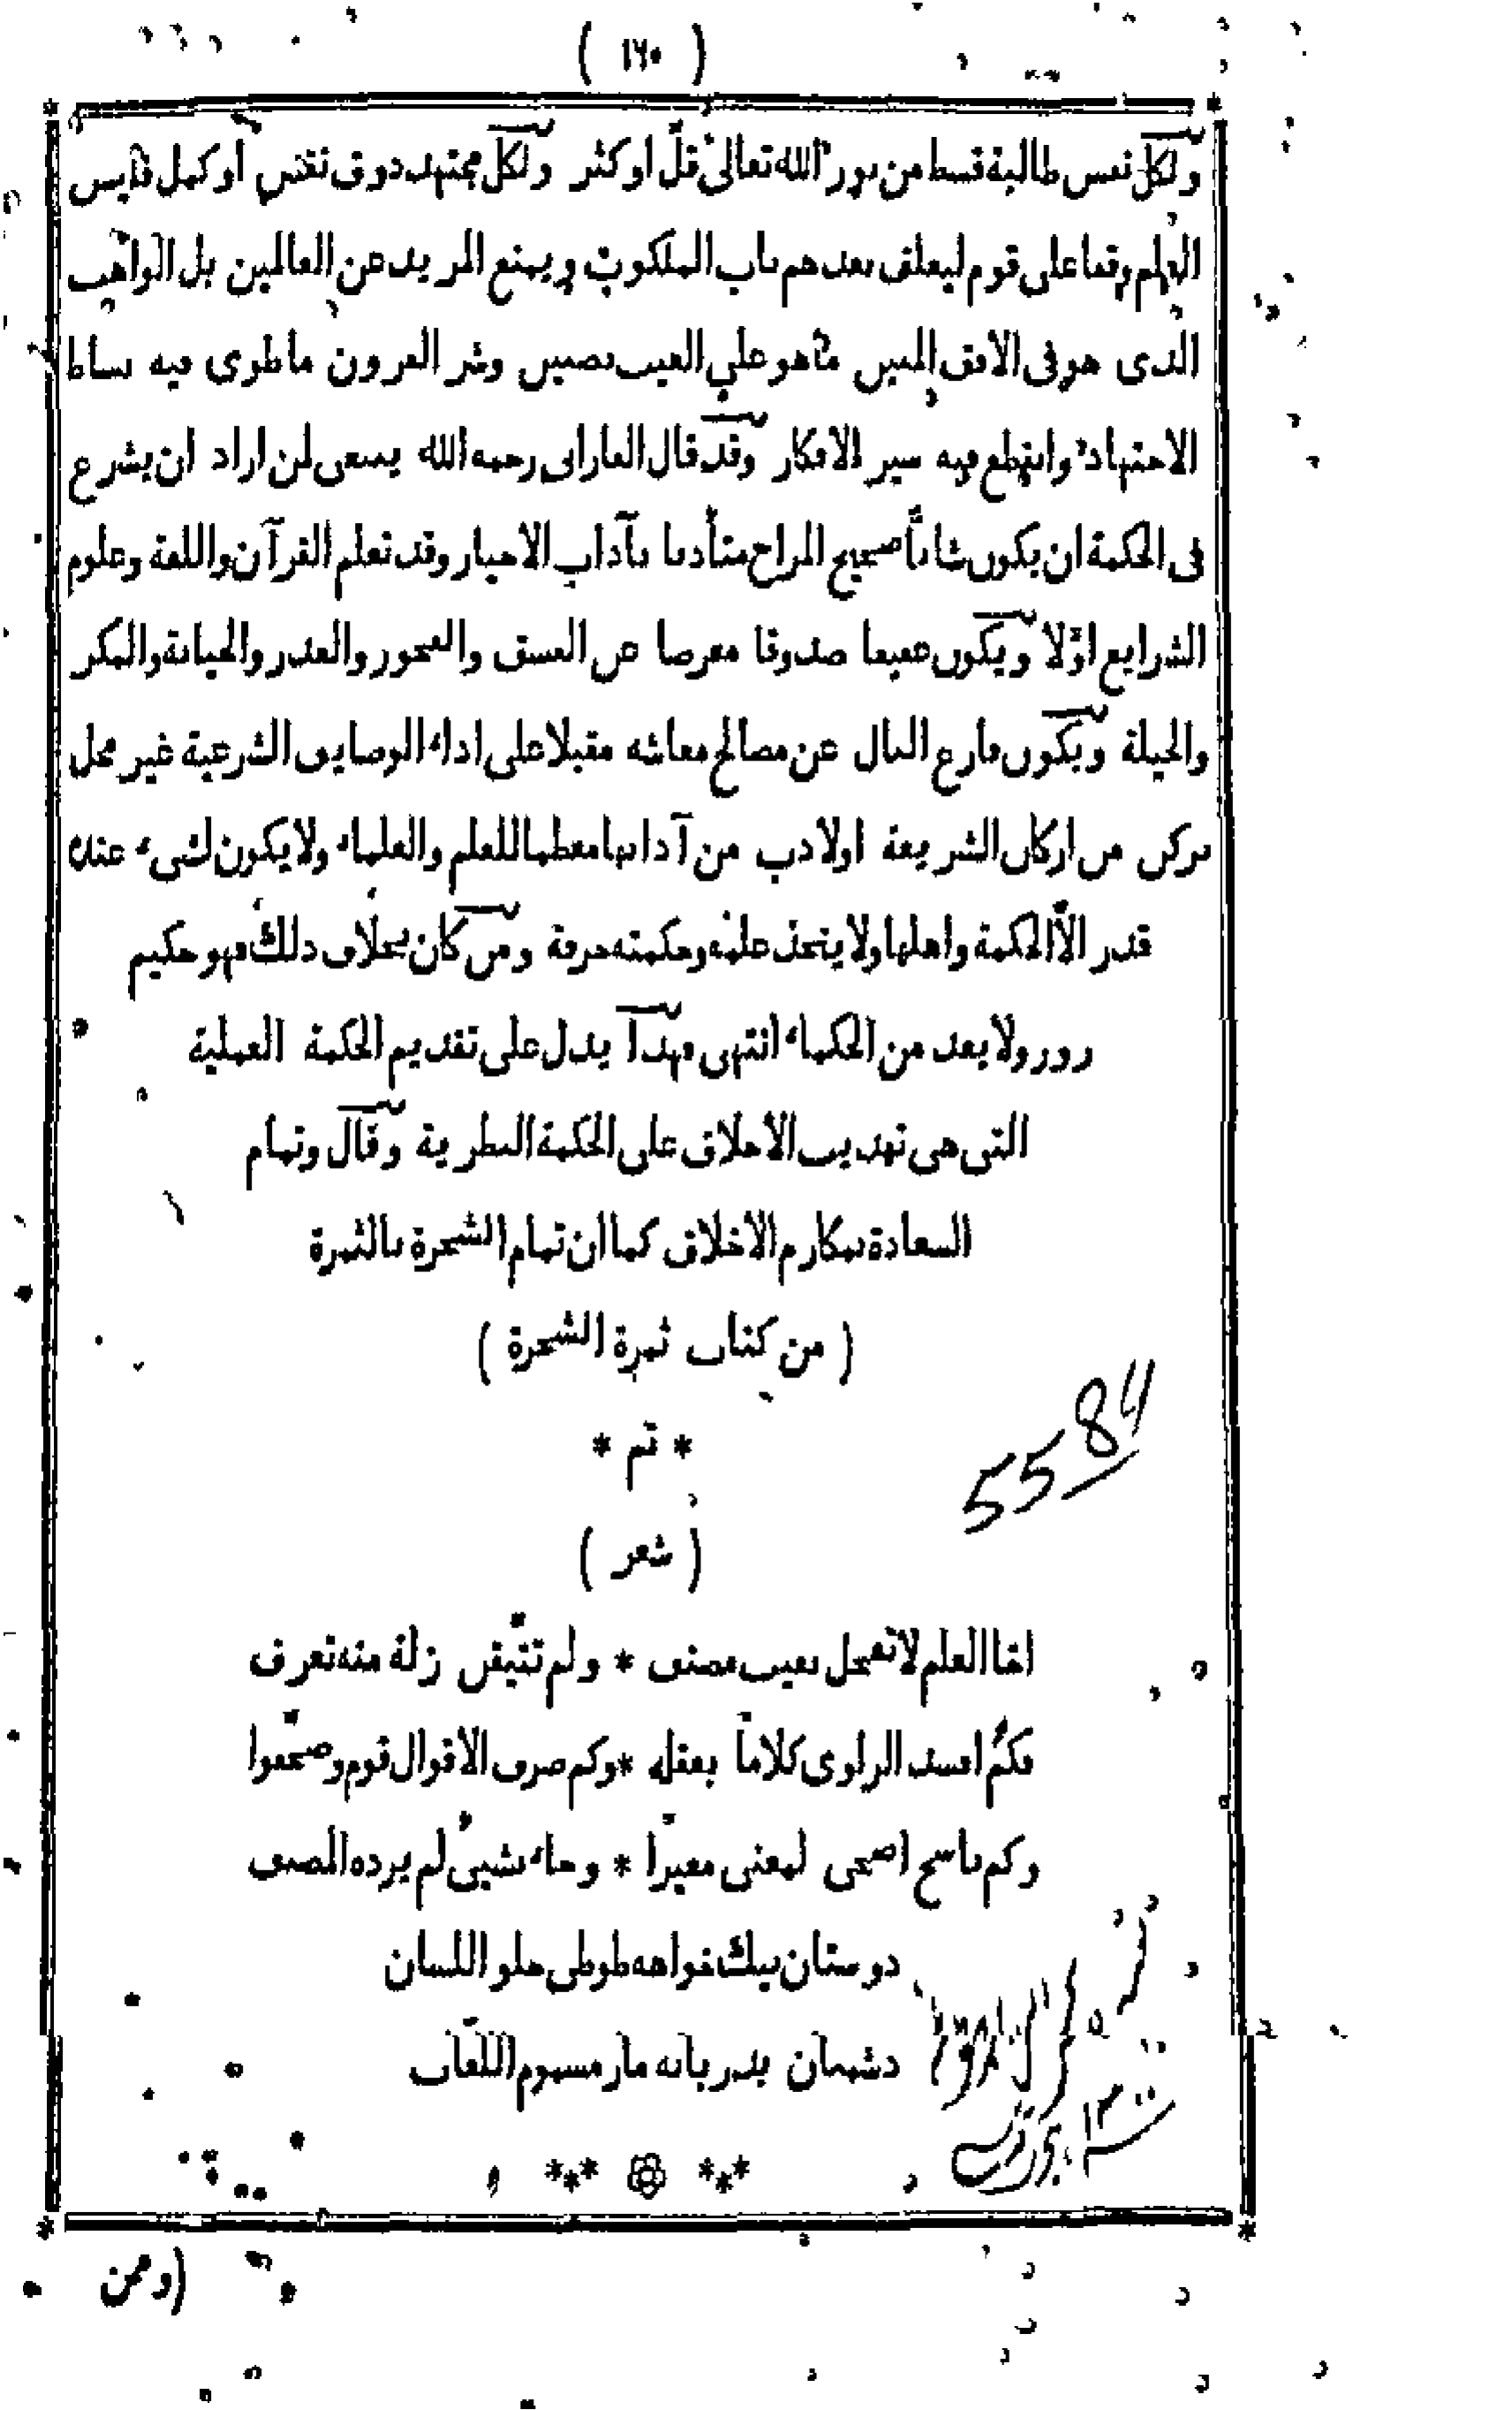 ( ١٦٠ )
ولكل نفس طالبة قسط من نور الله تعالى قلّ او كثر ولكل مجتهد ذوق نقص او كمل فليس
العلم وقفا على قوم ليغلق بعدهم باب الملكوت ويمنع المزيد عن العالمين بل الواهب
الذى هو فى الافق المبين ما هو على الغيب بضنين وشر القرون ما طوى فيه بساط
الاجتهاد وانقطع فيه سير الافكار وقد قال الفارابى رحمه الله ينبغى لمن اراد ان يشرع
فى الحكمة ان يكون شابّاً صحيح المزاج متأدبا بآداب الاخيار وقد تعلم القرآن واللغة وعلوم
الشرايع اوّلا ويكون عفيفا صدوقا معرضا عن الفسق والفجور والغدر والخيانة والمكر
والحيلة ويكون فارغ البال عن مصالح معاشه مقبلا على اداء الوضايف الشرعية غير مخل
بركن من اركان الشريعة اولادب من آدابها معظما للعلم والعلماء ولا يكون لشىء عنده
قدر الاّ الحكمة واهلها ولا يتخذ علمه وحكمته حرفة ومن كان بخلاف ذلك فهو حكيم
زور ولا يعد من الحكماء انتهى فهذا يدل على تقديم الحكمة العملية
التى هى تهذيب الاخلاق على الحكمة النظرية وقال وتمام
السعادة بمكارم الاخلاق كما ان تمام الشجرة بالثمرة
( من كتاب ثمرة الشجرة )
5584
* تم *
( شعر )
اخا العلم لا تعجل بعيب مصنف * ولم تتيقن زلة منه تعرف
فكم افسد الراوى كلاماً بعقله * وكم حرف الاقوال قوم وصحّفوا
وكم ناسخ اضحى لمعنى مغيرا * وجاء بشيئ لم يرده المصنف
دوستان نيك خواهه طوطى حلو اللسان
دشمنان بدزبانه مار مسموم اللعاب
*** ***
(ومن